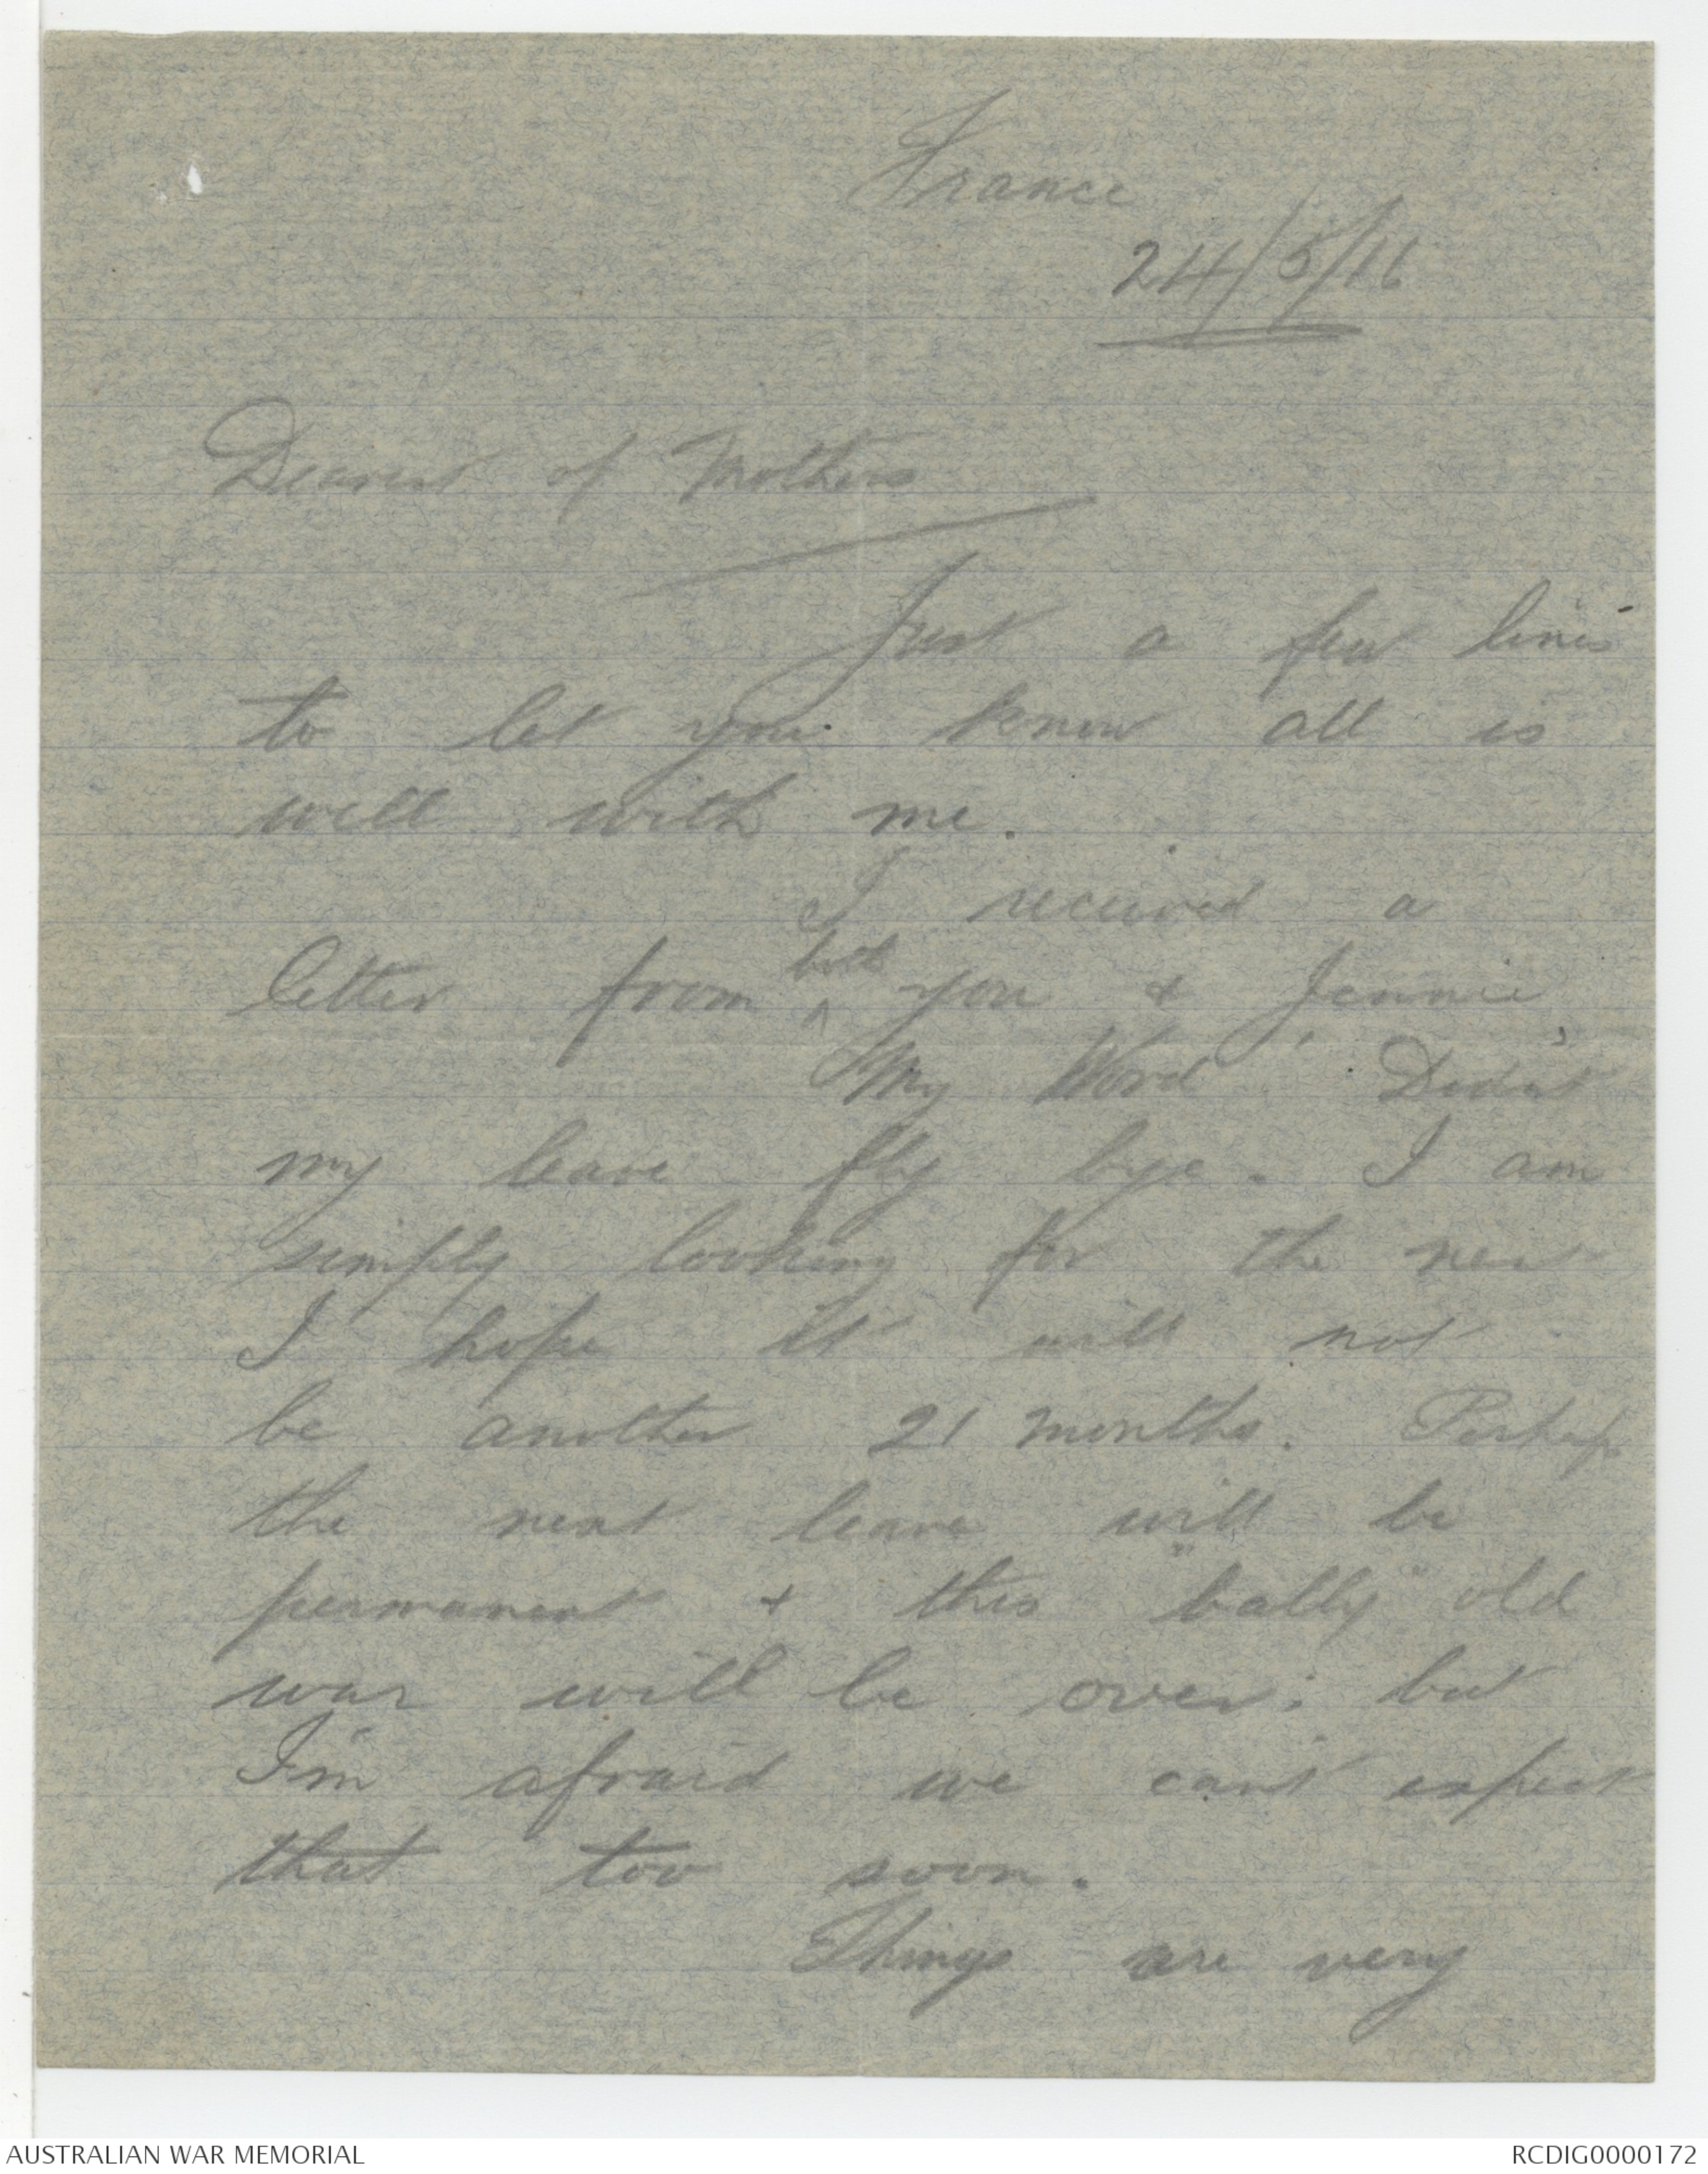 France
24/5/16
Dearest of Mothers
Just a few lines
to let you know all is
well with me.
I received a
letter from both you & Jennie
My Word! Didn't
my leave fly bye. I am
simply looking for the next
I hope it will not
be another 21 months. Perhaps
the next leave will be
permanent & this "bally" old
war will be over; but
I'm afraid we can't expect
that too soon.
Things are very
AUSTRALIAN WAR MEMORIAL
RCDIG0000172